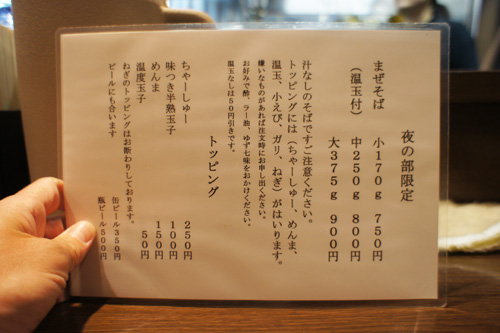 夜の部限定
まぜそば 小170g 750円
(温玉付) 中250g 800円
大375g 900円
汁なしのそばですご注意ください。
トッピングには(ちゃーしゅー、めんま、
温玉、小えび、ガリ、ねぎ)がはいります。
嫌いなものがあれば注文時にお申し出ください。
お好みで酢、ラー油、ゆず七味をおかけください。
温玉なしは50円引きです。
トッピング
ちゃーしゅー 250円
味つき半熟玉子 100円
めんま 150円
温度玉子 50円
ねぎのトッピングはお断わりしております。
ビールにも合います 缶ビール350円
瓶ビール500円